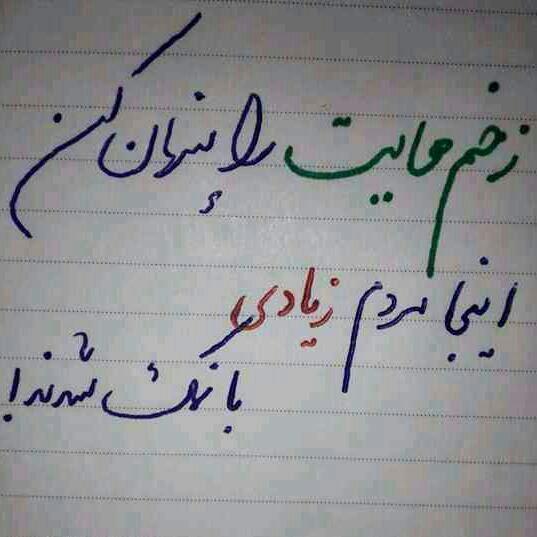 زخم هایت را پنهان کن
اینجا مردم زیادی
با نمک شدند!